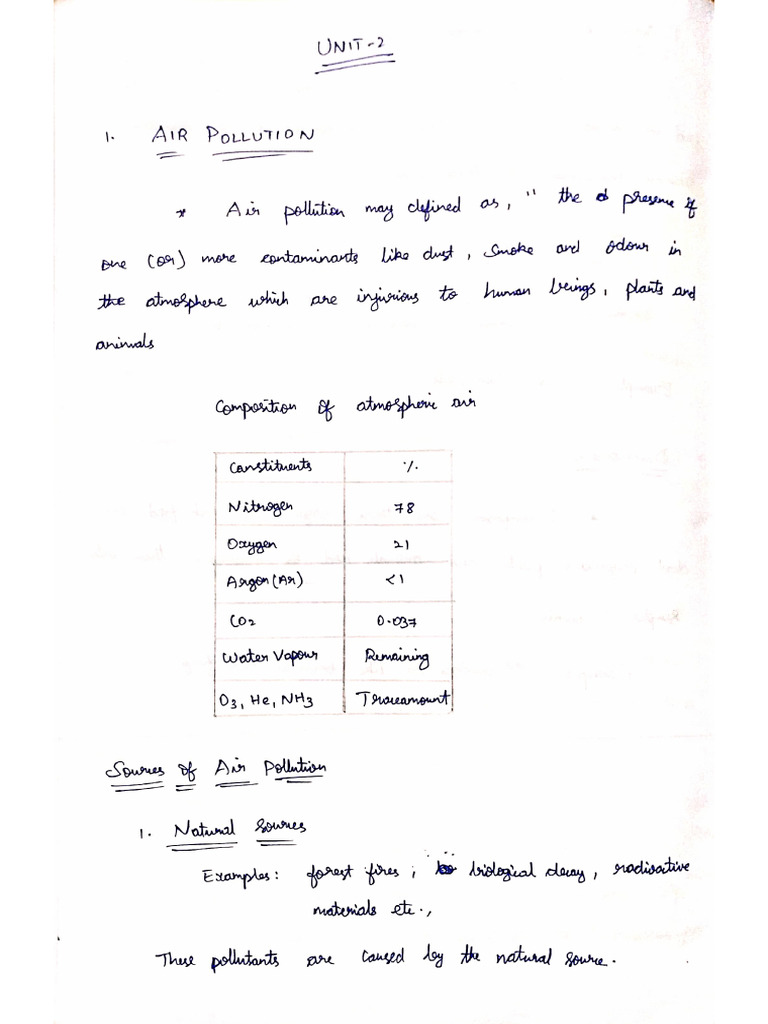 UNIT-2
1. AIR POLLUTION
* Air pollution may defined as, " the presence of
one (or) more contaminants like dust, smoke and odour in
the atmosphere which are injurious to human beings, plants and
animals
Composition of atmospheric air
Constituents %
Nitrogen 78
Oxygen 21
Argon (Ar) <1
CO2 0.037
Water Vapour Remaining
O3, He, NH3 Traceamount
Sources of Air Pollution
1. Natural Sources
Examples: forest fires, biological decay, radioactive
materials etc.,
These pollutants are caused by the natural source.